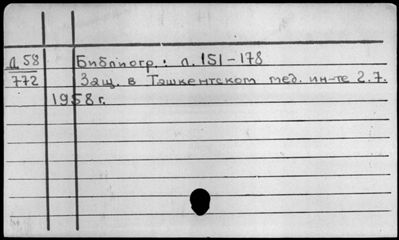 Д 58
772
Библиогр.: л. 151-178
Защ. в Ташкентском мед. ин-те 2.7.
1958г.